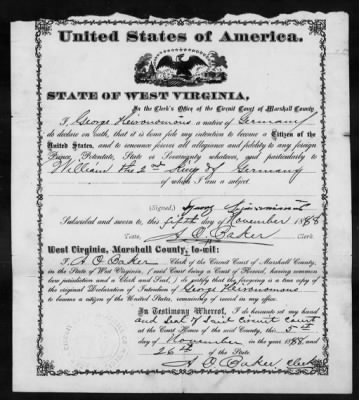 United States of America.
STATE OF WEST VIRGINIA,
In the Clerk's Office of the Circuit Court of Marshall County
I, George Heironomous a native of Germany
do declare on oath, that it is bona fide my intention to become a Citizen of the
United States, and to renounce forever all allegiance and fidelity to any foreign
Prince, Potentate, State or Sovereignty whatever, and particularly to
William the 2nd King of Germany
of whom I am a subject
(Signed,)
Subscribed and sworn to, this fifth day of November 1888
Teste, A O Baker Clerk.
West Virginia, Marshall County, to-wit:
I, A O Baker Clerk of the Circuit Court of Marshall County,
in the State of West Virginia, (said Court being a Court of Record, having common
law jurisdiction and a Clerk and Seal,) do certify that the foregoing is a true copy of
the original Declaration of Intention of George Heironomous
to become a citizen of the United States, remaining of record in my office.
In Testimony Whereof, I do hereunto set my hand
and Seal of said circuit court
at the Court House of the said County, this 5th
day of November in the year 1888 and
26th of the State
A O Baker Clerk